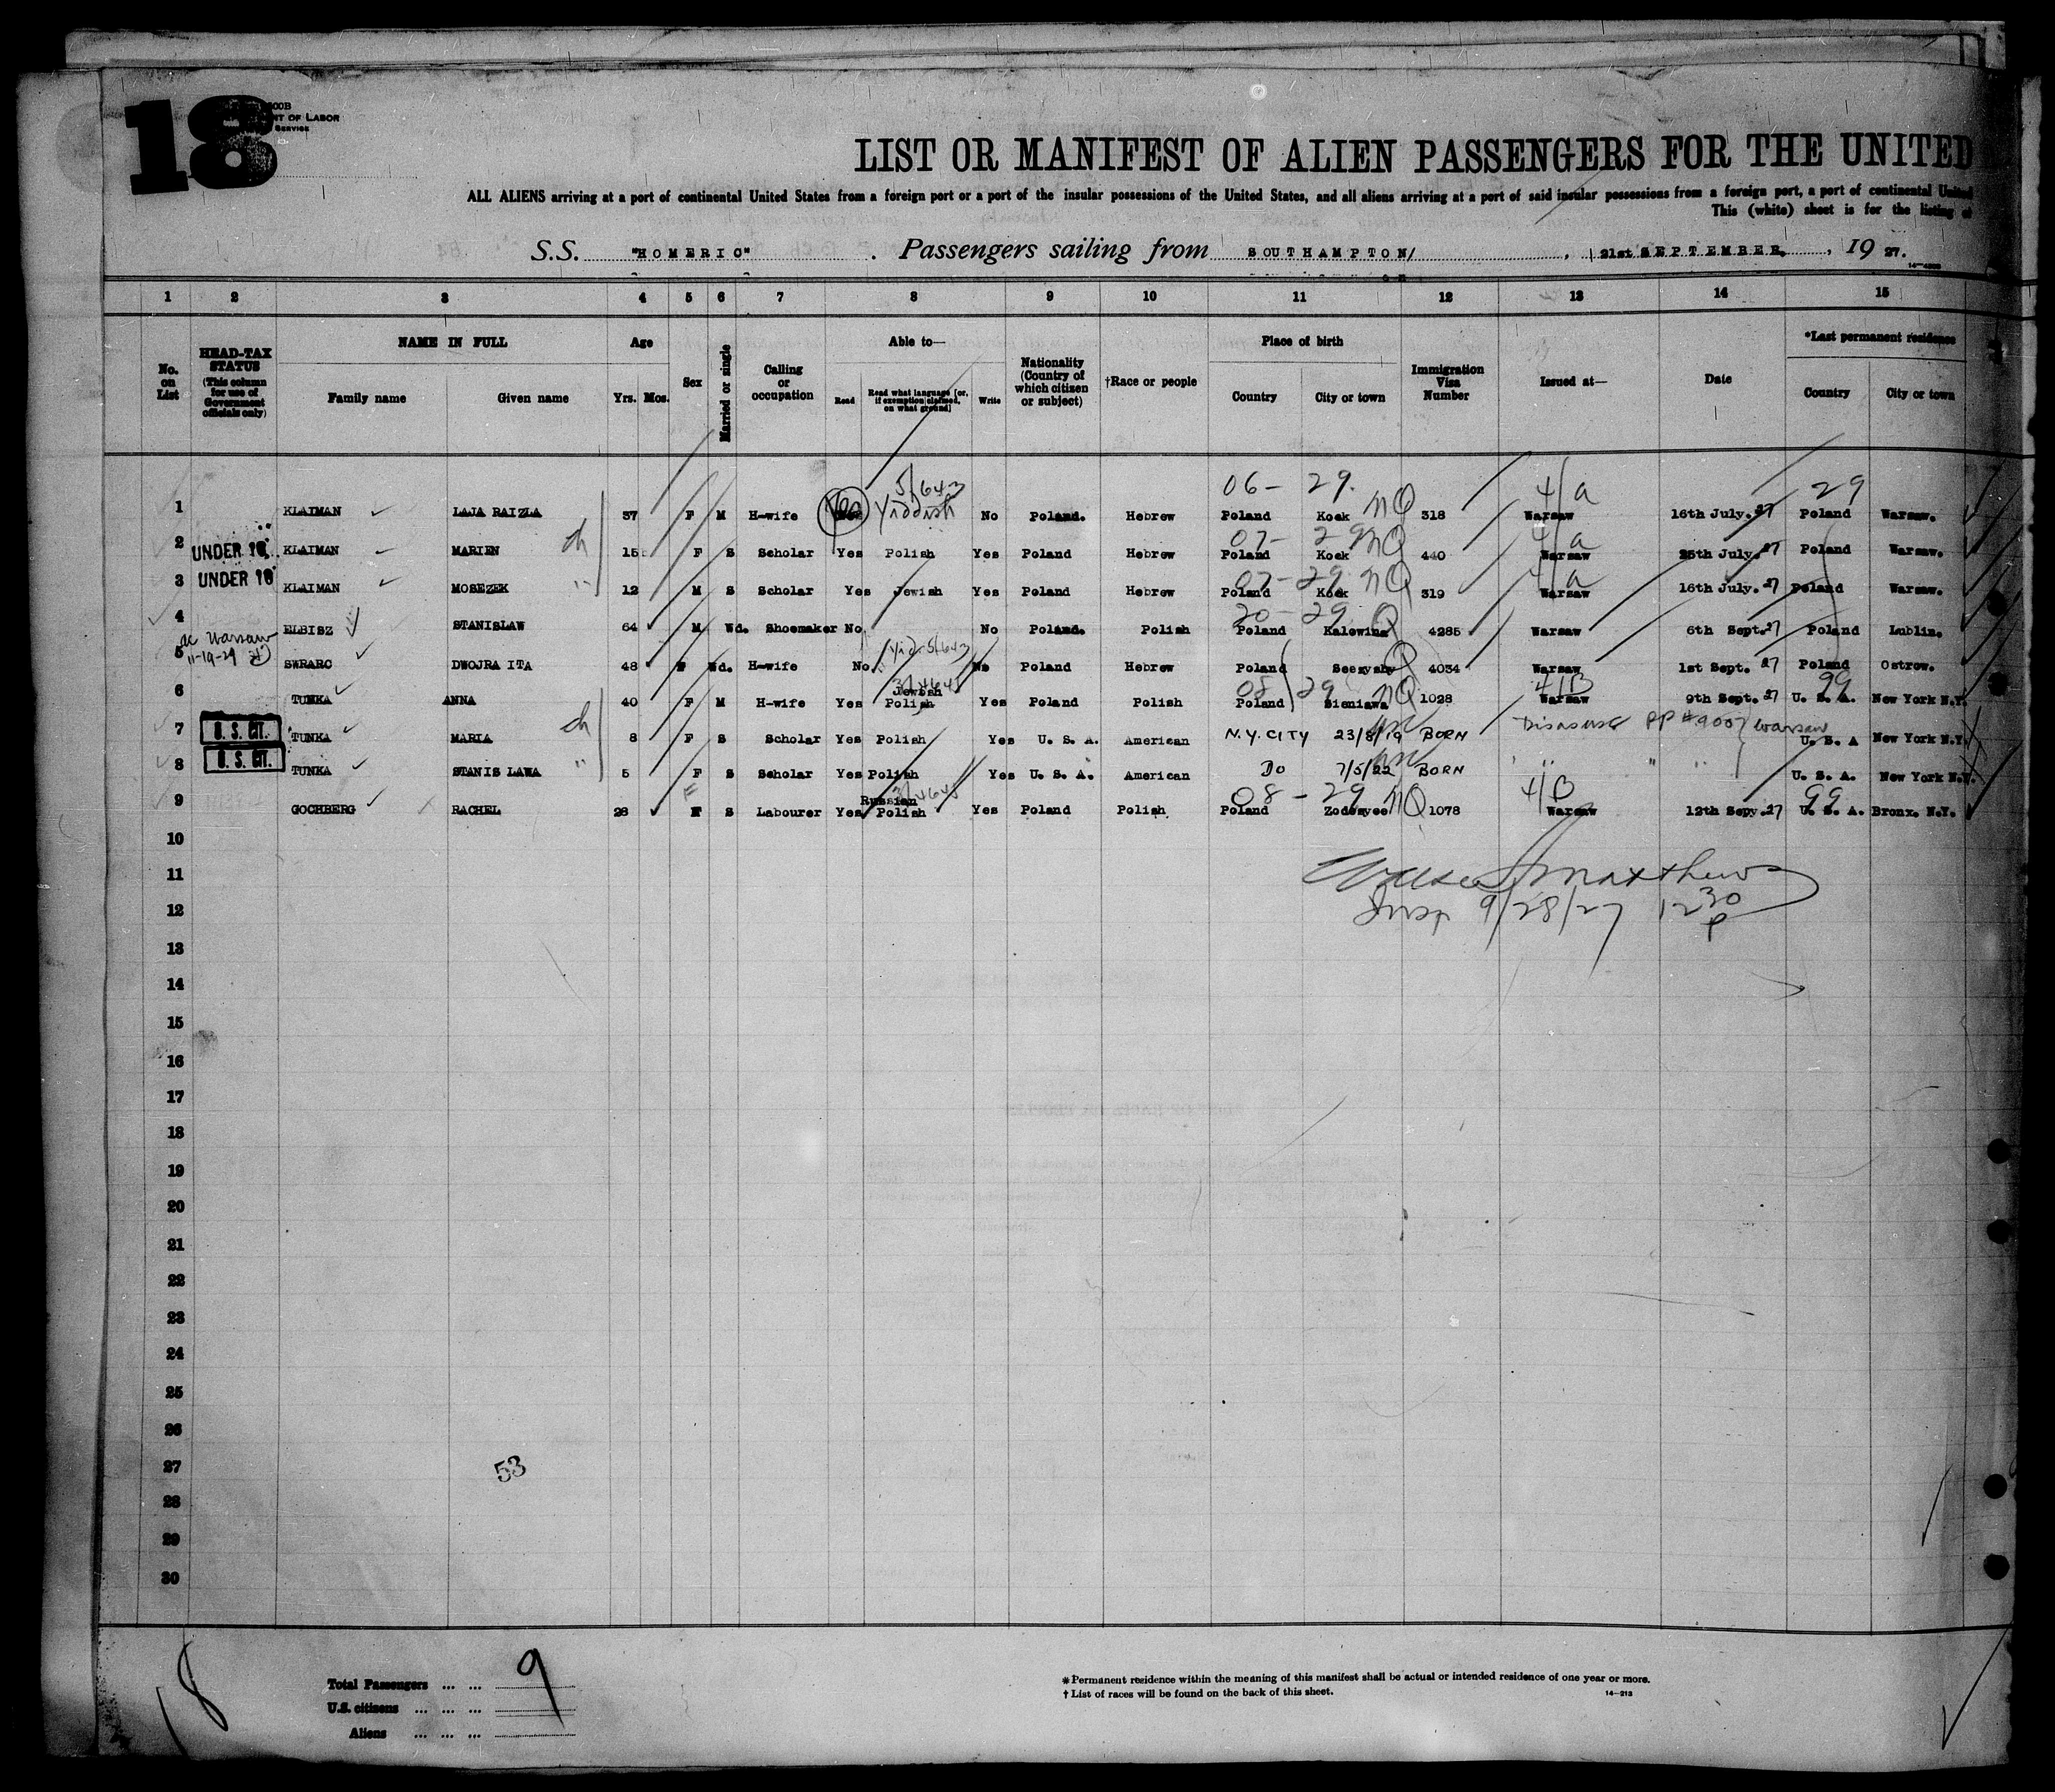 18
NT OF LABOR
SERVICE
LIST OR MANIFEST OF ALIEN PASSENGERS FOR THE UNITED
ALL ALIENS arriving at a port of continental United States from a foreign port or a port of the insular possessions of the United States, and all aliens arriving at a port of said insular possessions from a foreign port, a port of continental United
This (white) sheet is for the listing of
S.S. "HOMERIC" . Passengers sailing from SOUTHAMPTON/ , 21st SEPTEMBER. , 19 27.
1 2 3 4 5 6 7 8 9 10 11 12 13 14 15
No. on List HEAD-TAX STATUS (This column for use of Government officials only) NAME IN FULL Family name Given name Age Yrs. Mos. Sex Married or single Calling or occupation Able to— Read Read what language [or, if exemption claimed, on what ground] Write Nationality (Country of which citizen or subject) †Race or people Place of birth Country City or town Immigration Visa Number Issued at— Date *Last permanent residence Country City or town
5/643 06- 29. 4/a 29
1 KLAIMAN LAJA RAIZLA 37 F M H-wife Yes Yiddish No Poland. Hebrew Poland Kock NQ 318 Warsaw 16th July. 27 Poland Warsaw.
07- 29 NQ 4/a
2 UNDER 16 KLAIMAN MARIEN ch 15 F S Scholar Yes Polish Yes Poland Hebrew Poland Kock 440 Warsaw 25th July. 27 Poland Warsaw.
07-29 NQ 4/a
3 UNDER 16 KLAIMAN MOSEZEK " 12 M S Scholar Yes Jewish Yes Poland Hebrew Poland Kock 319 Warsaw 16th July. 27 Poland Warsaw.
20-29 Q
4 ELBISZ STANISLAW 64 M Wd. Shoemaker No. No Poland. Polish Poland Kalewina 4285 Warsaw 6th Sept. 27 Poland Lublin.
Warsaw
11-19-29
Yid-5/643
5 SWRARC DWOJRA ITA 48 F Wd. H-wife No. No Poland Hebrew Poland Q 4034 Warsaw 1st Sept. 27 Poland Ostrow.
Jewish 08 29 NQ 4/B 99
6 TUNKA ANNA 40 F M H-wife Yes Polish Yes Poland Polish Poland Sieniawa 1028 Warsaw 9th Sept. 27 U. S. A. New York N.Y.
7 U. S. CIT. TUNKA MARIA ch 8 F S Scholar Yes Polish Yes U. S. A. American N.Y. CITY 23/8/19 BORN PP # Warsaw U. S. A New York N.Y.
8 U. S. CIT. TUNKA STANISLAWA " 5 F S Scholar Yes Polish Yes U. S. A. American Do 7/5/22 BORN " " " U. S. A. New York N.Y.
F Russian 08-29 NQ 4/B 99
9 GOCHBERG RACHEL 28 F S Labourer Yes Polish Yes Poland Polish Poland 1078 Warsaw 12th Sepy. 27 U. S. A. Bronx. N.Y.
10
11 Matthews
12 Insp 9/28/27 12 30 P
13
14
15
16
17
18
19
20
21
22
23
24
25
26
27 53
28
29
30
18
Total Passengers ... ... 9
U.S. citizens ... ... ...
Aliens ... ... ...
* Permanent residence within the meaning of this manifest shall be actual or intended residence of one year or more.
† List of races will be found on the back of this sheet. 14—213